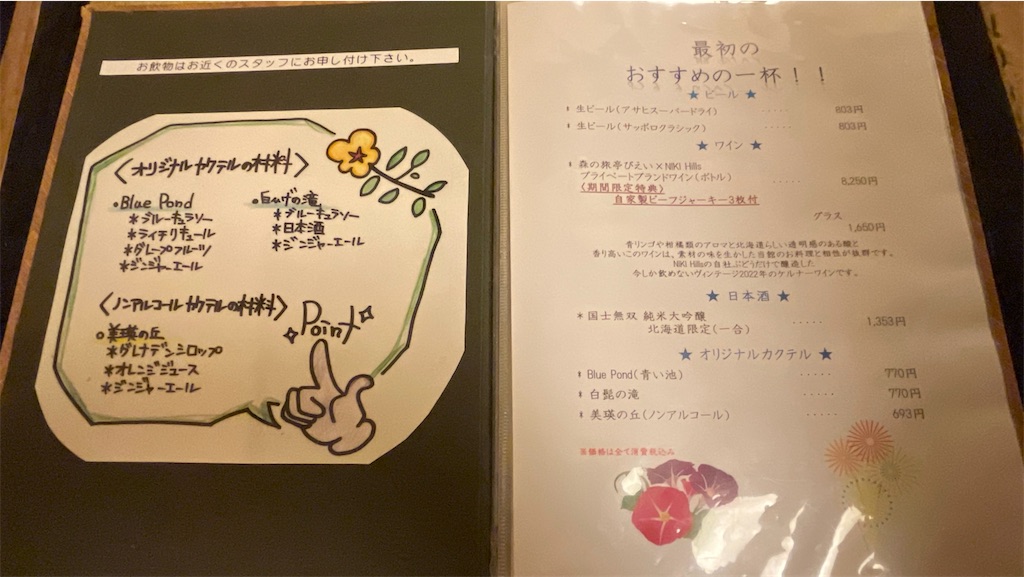 お飲物はお近くのスタッフにお申し付け下さい。
〈オリジナルカクテルの材料〉
•Blue Pond
*ブルーキュラソー
*ライチリキュール
*グレープフルーツ
*ジンジャーエール
•白ひげの滝
*ブルーキュラソー
*日本酒
*ジンジャーエール
〈ノンアルコールカクテルの材料〉
•美瑛の丘
*グレナデンシロップ
*オレンジジュース
*ジンジャーエール
Point
最初の
おすすめの一杯！！
★ ビール ★
* 生ビール(アサヒスーパードライ) ····· 803円
* 生ビール(サッポロクラシック) ····· 803円
★ ワイン ★
* 森の旅亭びえい×NIKI Hills
プライベートブランドワイン(ボトル) ····· 8,250円
〈期間限定特典〉
自家製ビーフジャーキー3枚付
グラス
1,650円
青リンゴや柑橘類のアロマと北海道らしい透明感のある酸と
香り高いこのワインは、素材の味を生かした当館のお料理と相性が抜群です。
NIKI Hillsの自社ぶどうだけで醸造した
今しか飲めないヴィンテージ2022年のケルナーワインです。
★ 日本酒 ★
* 国士無双 純米大吟醸 ····· 1,353円
北海道限定(一合)
★ オリジナルカクテル ★
* Blue Pond(青い池) ····· 770円
* 白髭の滝 ····· 770円
* 美瑛の丘(ノンアルコール) ····· 693円
※価格は全て消費税込み